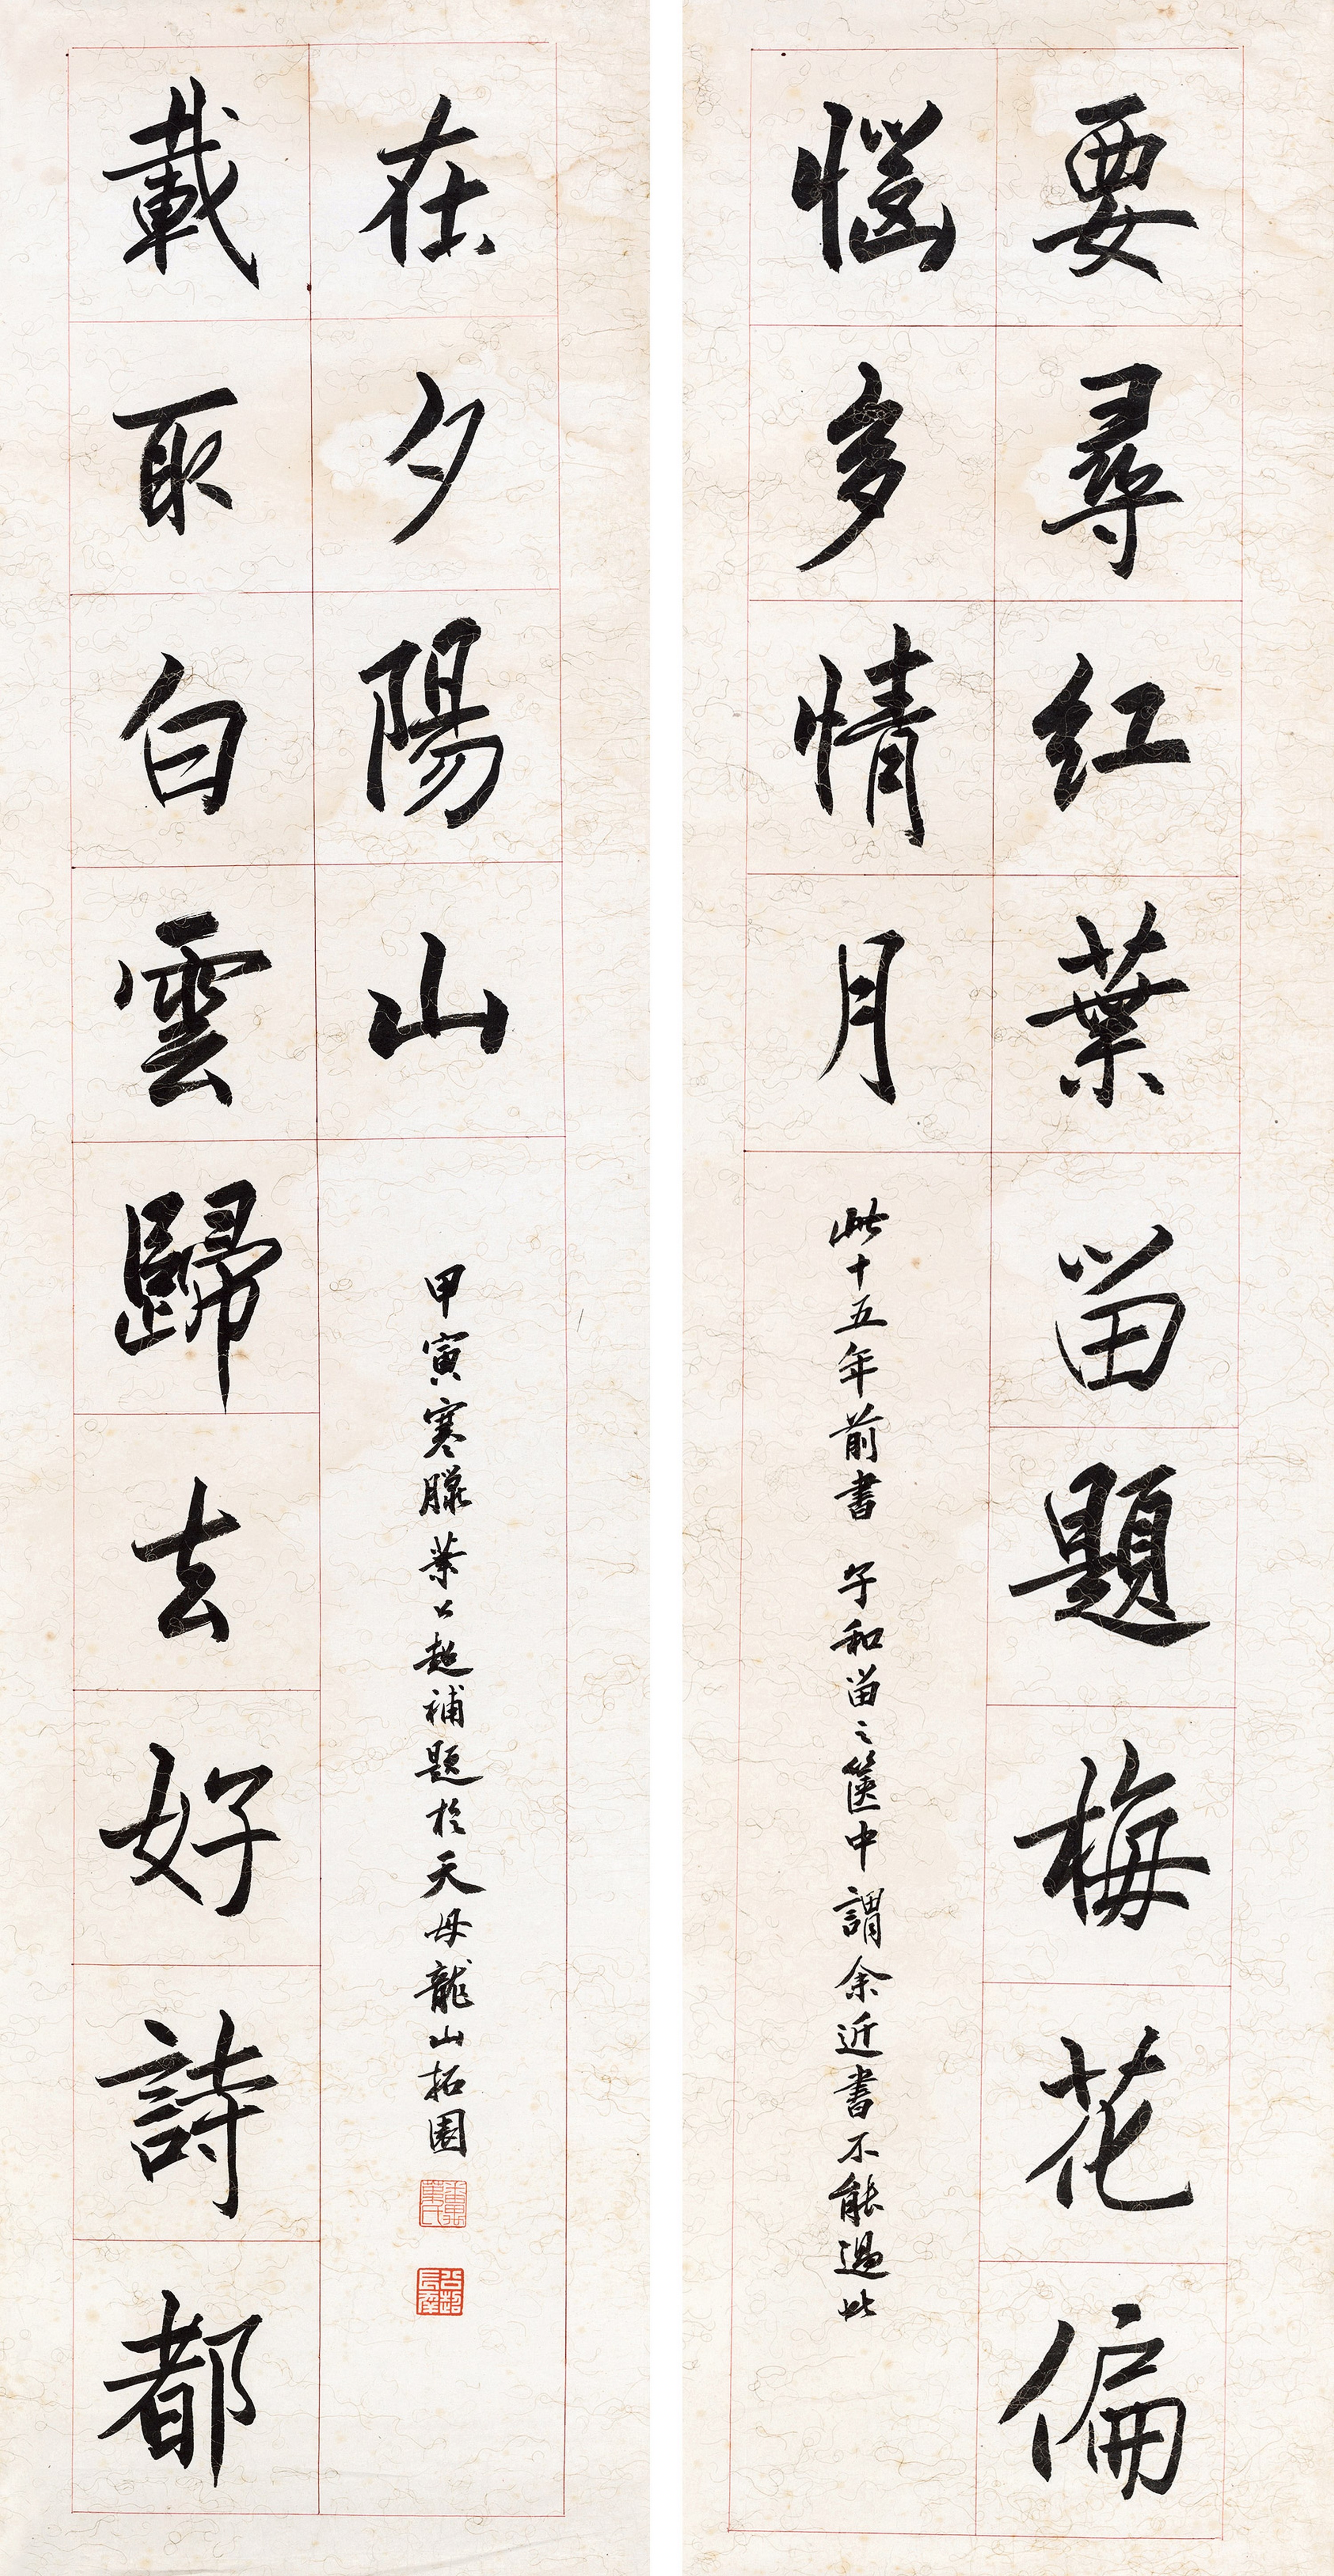 要尋红葉留題梅花偏
惱多情月
此十五年前書 子和留之篋中 謂余近書不能過此
載取白雲歸去好詩都
在夕陽山
甲寅寒臘葉公超補題於天母龍山拓園
番禺葉氏
公超長壽